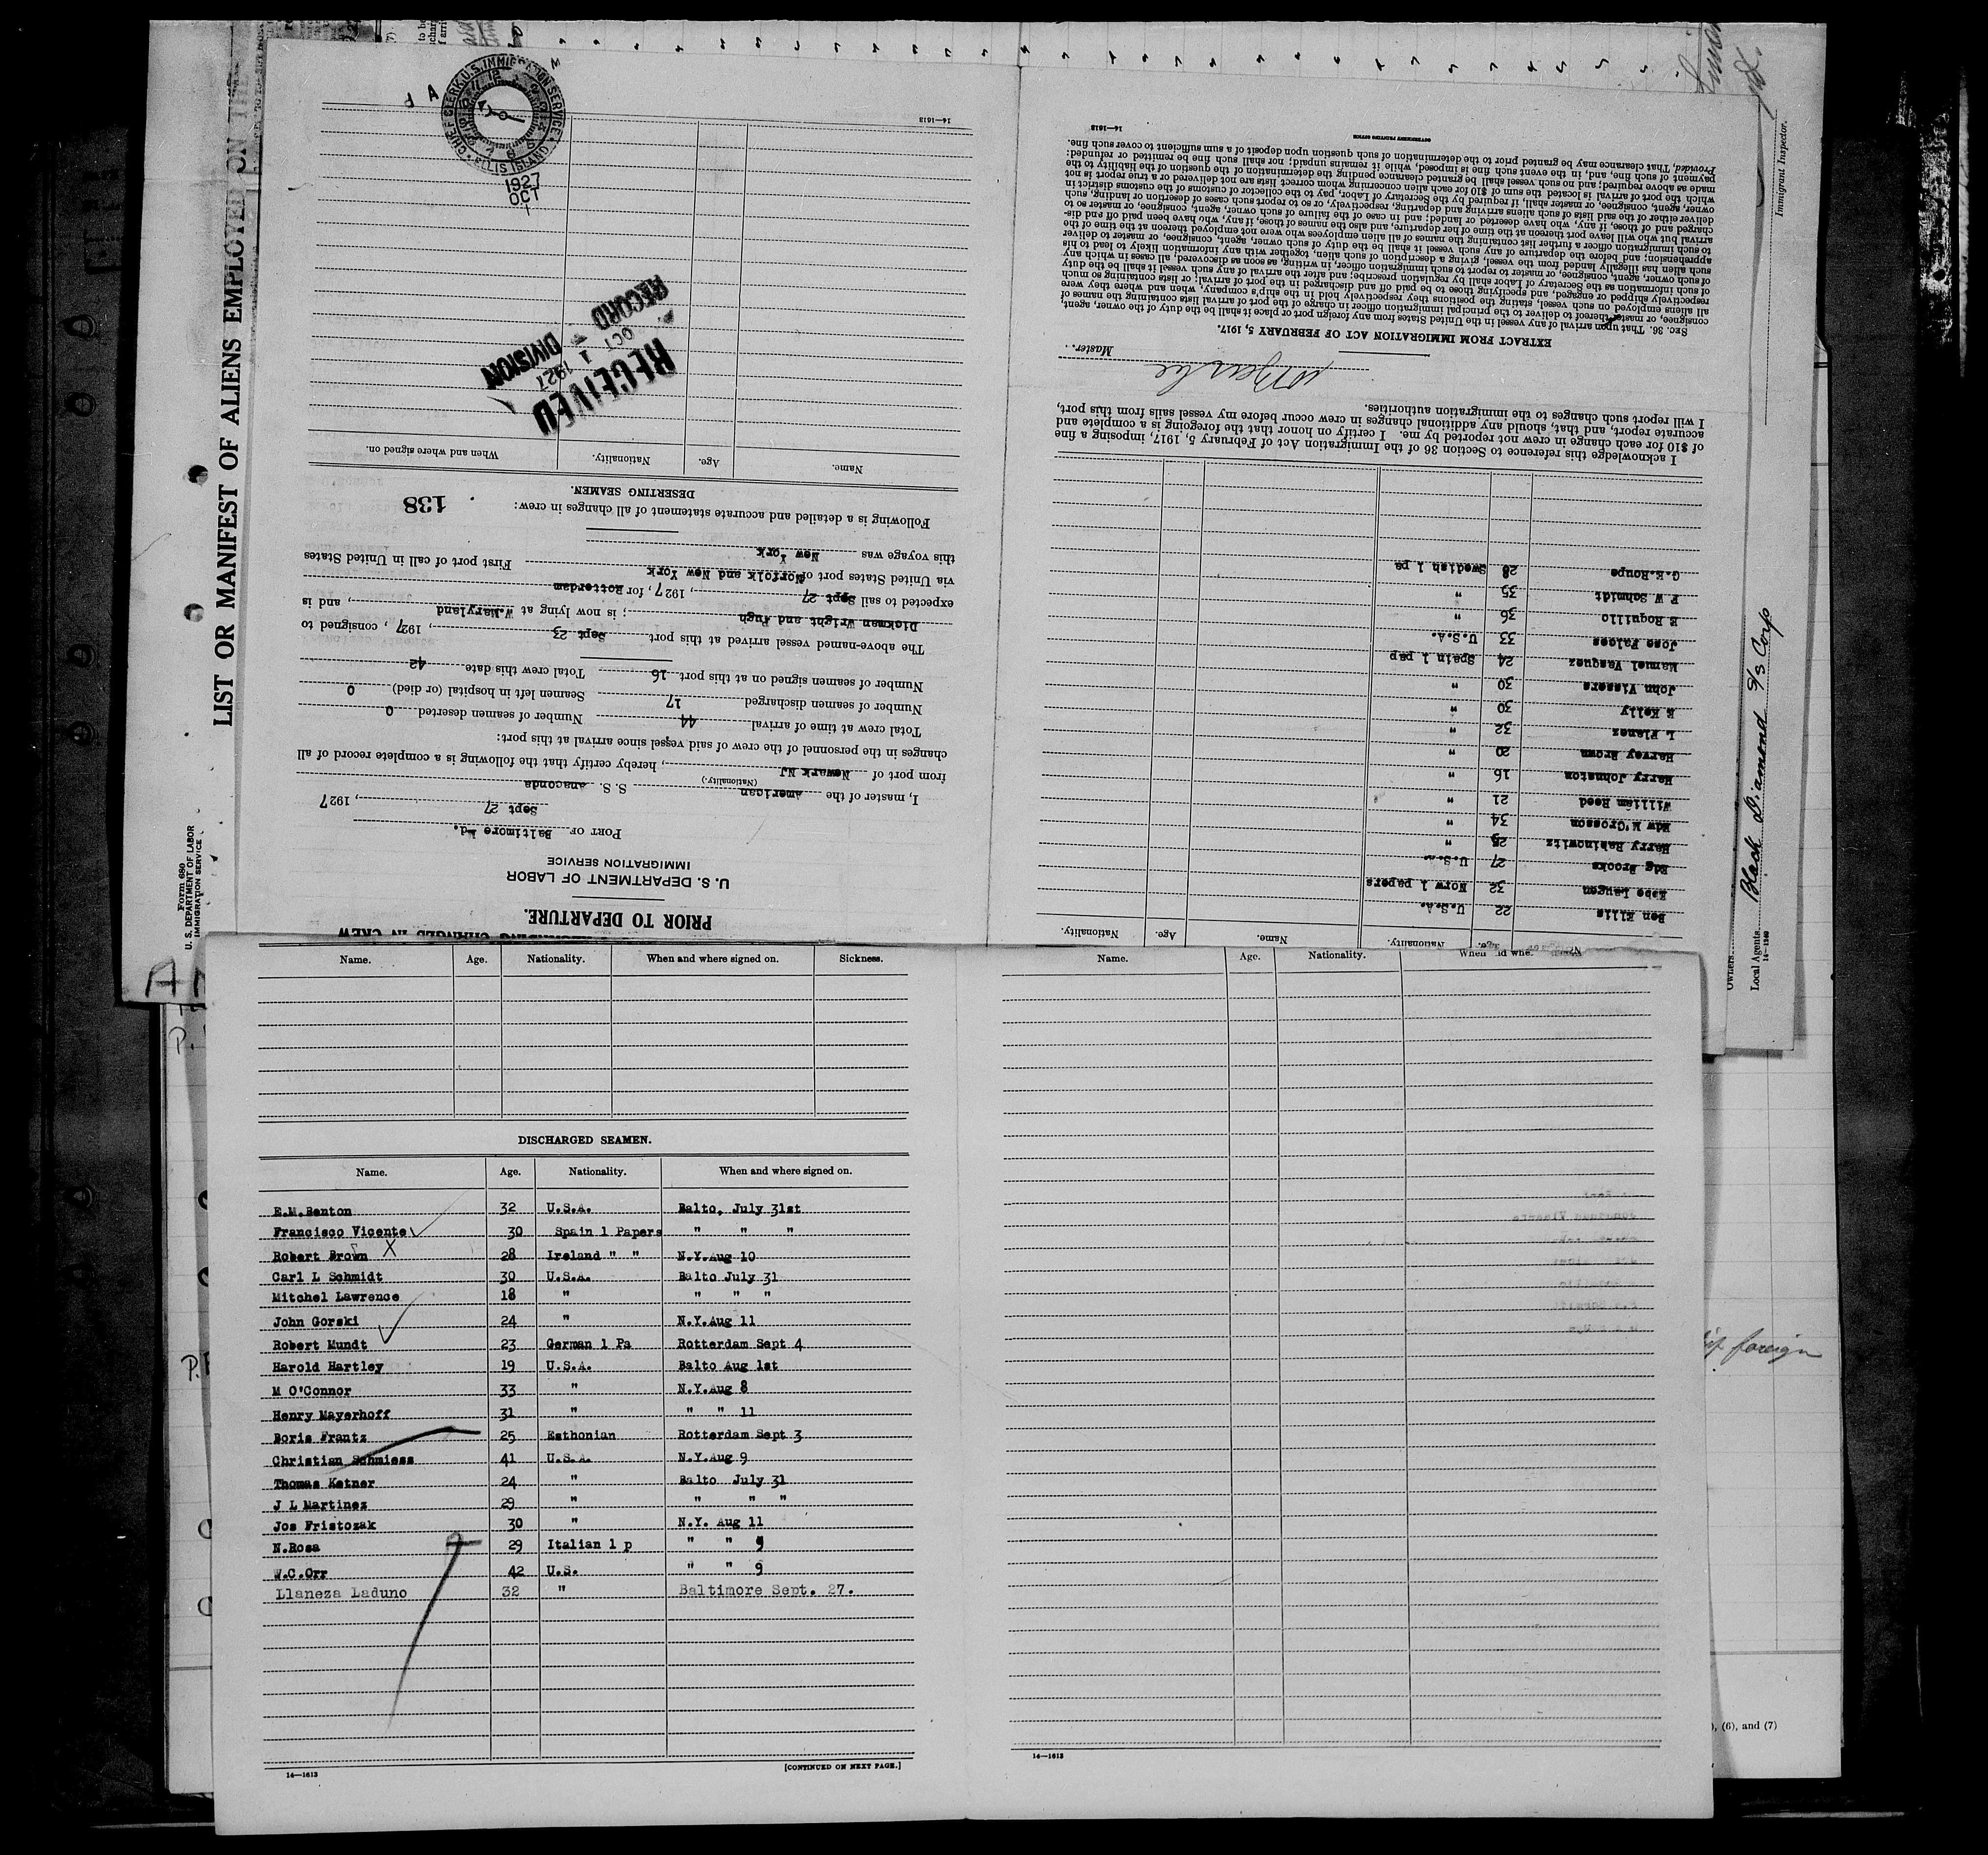 LIST OR MANIFEST OF ALIENS EMPLOYED ON THE
Form 680
U. S. DEPARTMENT OF LABOR
IMMIGRATION SERVICE
PRIOR TO DEPARTURE.
U. S. DEPARTMENT OF LABOR
IMMIGRATION SERVICE
PORT OF Baltimore Md.
Sept 27, 1927
I, master of the American S. S. anaconda
(Nationality.)
from port of Newark NJ, hereby certify that the following is a complete record of all
changes in the personnel of the crew of said vessel since arrival at this port:
Total crew at time of arrival 44 Number of seamen deserted 0
Number of seamen discharged 17 Seamen left in hospital (or died) 0
Number of seamen signed on at this port 16 Total crew this date 42
The above-named vessel arrived at this port Sept 23, 1927, consigned to
Dickman Wright and Pugh; is now lying at W.Maryland, and is
expected to sail Sept 27, 1927, for Rotterdam
via United States port of Norfolk and New York First port of call in United States
this voyage was New York
Following is a detailed and accurate statement of all changes in crew:
138
DESERTING SEAMEN.
Name. Age. Nationality. When and where signed on.
RECEIVED
OCT 1 1927
RECORD DIVISION
CHIEF CLERK U.S. IMMIGRATION SERVICE
ELLIS ISLAND
1927
OCT
1
14—1613
Name. Age. Nationality. Name. Age. Nationality.
Ben Ellis 22 U.S.A.
Ebbe Laugen 32 Norw 1 papers
Edg Brooks 27 U.S.A.
Harry Rabinowitz 28 "
Edw M'Crosson 34 "
William Reed 21 "
Harry Johnston 16 "
Harvey Brown 20 "
L Planez 32 "
E Kelly 30 "
John Vissers 30 "
Manuel Vasquez 24 Spain 1 pap
Jose Falces 33 U.S.A.
E Roquillo 36 "
F W Schmidt 35 "
G.E.Roupe 28 Swedish 1 pa
I acknowledge this reference to Section 36 of the Immigration Act of February 5, 1917, imposing a fine
of $10 for each change in crew not reported by me. I certify on honor that the foregoing is a complete and
accurate report, and that, should any additional changes in crew occur before my vessel sails from this port,
I will report such changes to the immigration authorities.
Master.
EXTRACT FROM IMMIGRATION ACT OF FEBRUARY 5, 1917.
Sec. 36. That upon arrival of any vessel in the United States from any foreign port or place it shall be the duty of the owner, agent,
consignee, or master thereof to deliver to the principal immigration officer in charge of the port of arrival lists containing the names of
all aliens employed on such vessel, stating the positions they respectively hold in the ship's company, when and where they were
respectively shipped or engaged, and specifying those to be paid off and discharged in the port of arrival; or lists containing so much
of such information as the Secretary of Labor shall by regulation prescribe; and after the arrival of any such vessel it shall be the duty
of such owner, agent, consignee, or master to report to such immigration officer, in writing, as soon as discovered, all cases in which any
such alien has illegally landed from the vessel, giving a description of such alien, together with any information likely to lead to his
apprehension; and before the departure of any such vessel it shall be the duty of such owner, agent, consignee, or master to deliver
to such immigration officer a further list containing the names of all alien employees who were not employed thereon at the time of the
arrival but who will leave port thereon at the time of her departure, and also the names of those, if any, who have been paid off and dis-
charged and of those, if any, who have deserted or landed; and in case of the failure of such owner, agent, consignee, or master so to
deliver either of the said lists of such aliens arriving and departing, respectively, or so to report such cases of desertion or landing, such
owner, agent, consignee, or master, shall, if required by the Secretary of Labor, pay to the collector of customs of the customs district in
which the port of arrival is located the sum of $10 for each alien concerning whom correct lists are not delivered or a true report is not
made as above required; and no such vessel shall be granted clearance pending the determination of the question of the liability to the
payment of such fine, and, in the event such fine is imposed, while it remains unpaid; nor shall such fine be remitted or refunded:
Provided, That clearance may be granted prior to the determination of such question upon deposit of a sum sufficient to cover such fine.
14—1613
GOVERNMENT PRINTING OFFICE
Immigrant Inspector.
Owners
Local Agents Black Diamond S/S Corp
14—1240
Name. Age. Nationality. When and where signed on. Sickness.
DISCHARGED SEAMEN.
Name. Age. Nationality. When and where signed on.
E.M.Benton 32 U.S.A. Balto, July 31st
Francisco Vicente 30 Spain 1 Papers " " "
Robert Brown X 28 Ireland " " N.Y.Aug 10
Carl L Schmidt 30 U.S.A. Balto July 31
Mitchel Lawrence 18 " " " "
John Gorski 24 " N.Y.Aug 11
Robert Mundt 23 German 1 Pa Rotterdam Sept 4
Harold Hartley 19 U.S.A. Balto Aug 1st
M O'Connor 33 " N.Y.Aug 8
Henry Mayerhoff 31 " " " 11
Boris Frantz 25 Esthonian Rotterdam Sept 3
Christian Schmiess 41 U.S.A. N.Y.Aug 9
Thomas Ketner 24 " Balto July 31
J L Martinez 29 " " " "
Jos Fristozak 30 " N.Y. Aug 11
N.Rosa 29 Italian 1 p " " 9
W.C.Orr 42 U.S. " " 9
Llaneza Laduno 32 " Baltimore Sept. 27.
14—1613
[CONTINUED ON NEXT PAGE.]
Name. Age. Nationality.
14—1613
foreign
(6), and (7)